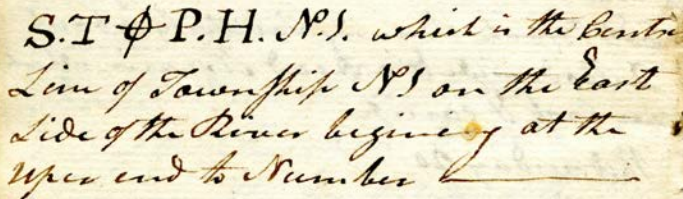 S.T ф P.H. № 1. which is the Centre
Line of Township № 1 on the East
Side of the River begineng at the
uper end to Number